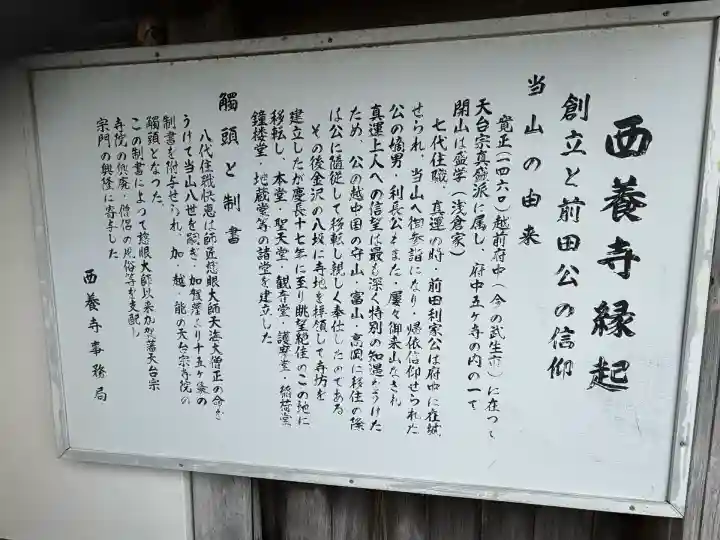 西養寺縁起
創立と前田公の信仰
当山の由来
寛正(一四六〇)越前府中(今の武生市)に在つて
天台宗真盛派に属し、府中五ヶ寺の内の一で
開山は盛学(浅倉家)
七代住職、真運の時・前田利家公は府中に在城
せられ、当山へ御参詣になり・帰依信仰せられた
公の嫡男・利長公もまた・屡々御来山なされ
真運上人への信望は最も深く特別の知遇をうけた
ため、公の越中国の守山・富山・高岡に移住の際
は公に随従して移転し親しく奉仕したのである
その後金沢の八坂に寺地を拝領して寺坊を
建立したが慶長十七年に至り眺望絶佳のこの地に
移転し、本堂・聖天堂・観音堂・護摩堂・稲荷堂
鐘楼堂・地蔵堂等の諸堂を建立した
觸頭と制書
八代住職快恵は師匠慈眼大師天海大僧正の命を
うけて当山八世を継ぎ、加賀藩より十五ヶ条の
制書を附与せられ、加・越・能の天台宗寺院の
觸頭となつた。
この制書によつて慈眼大師以来加賀藩天台宗
寺院の興廃・僧侶の風俗等を支配し
宗門の興隆に寄与した
西養寺事務局